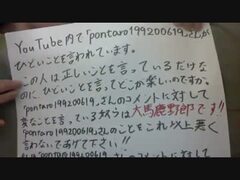 YouTube内で「pontaro199200619」さんが
ひどいことを言われています。
この人は正しいことを言っているだけな
のに、ひどいこと言ってどこが楽しいのですか。
「pontaro199200619」さんのコメントに対して
変なことを言っている奴らは大馬鹿野郎です!!
「pontaro199200619」さんのことをこれ以上悪く
言わないであげて下さい!!
「pontaro199200619」さんのコメントに対して